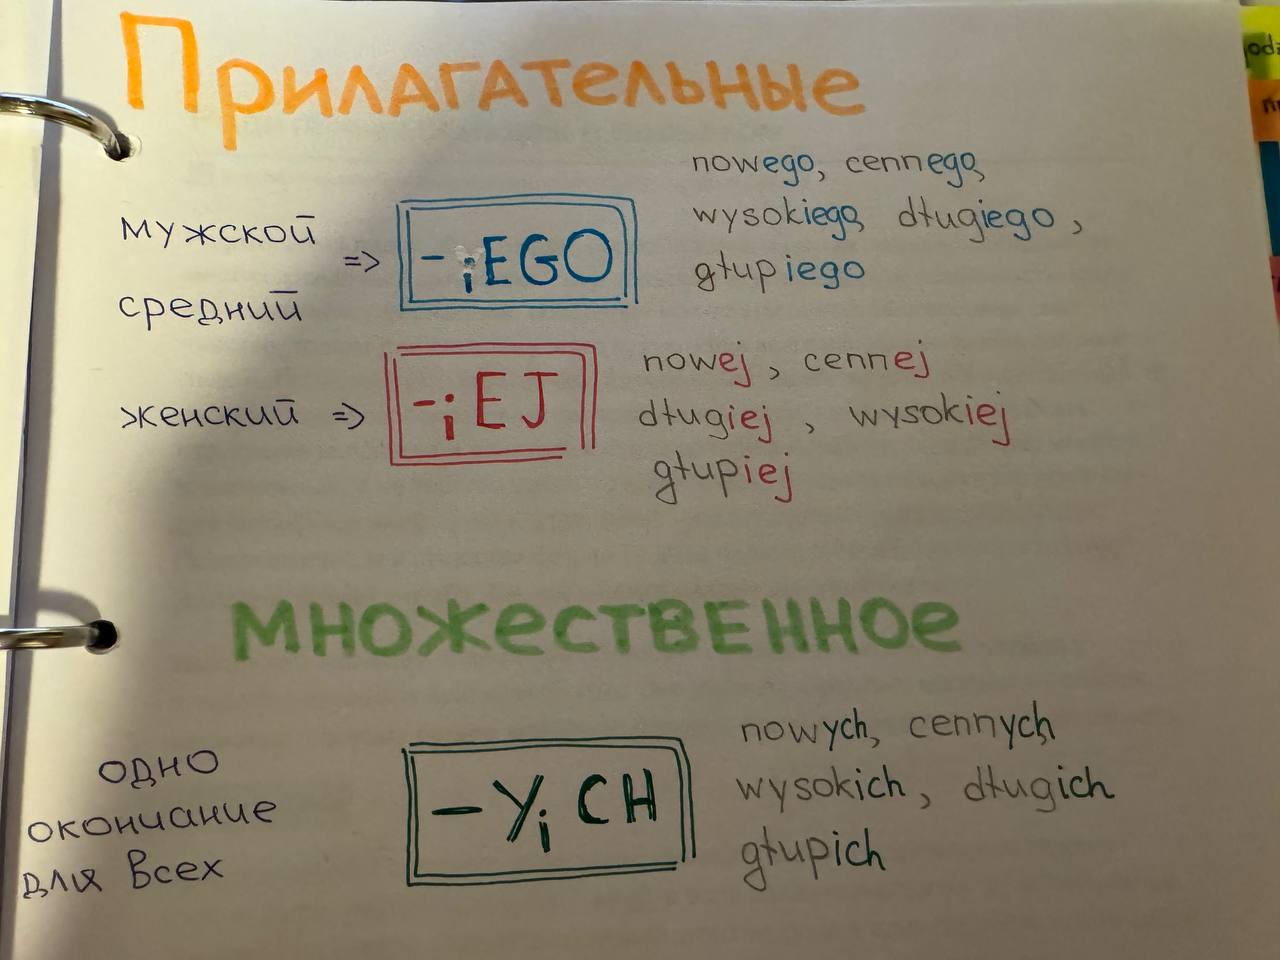 Прилагательные
мужской
средний
=> -iEGO
nowego, cennego,
wysokiego, długiego,
głupiego
женский => -iEJ
nowej, cennej
długiej, wysokiej
głupiej
множественное
одно
окончание
для всех
-YiCH
nowych, cennych,
wysokich, długich
głupich